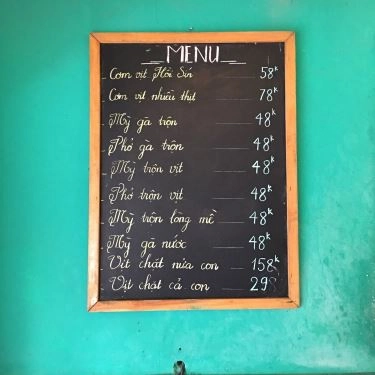 MENU
Cơm vịt Hỏi Sín 58k
Cơm vịt nhiều thịt 78k
Mỳ gà trộn 48k
Phở gà trộn 48k
Mỳ trộn vịt 48k
Phở trộn vịt 48k
Mỳ trộn lòng mề 48k
Mỳ gà nước 48k
Vịt chặt nửa con 158k
Vịt chặt cả con 298